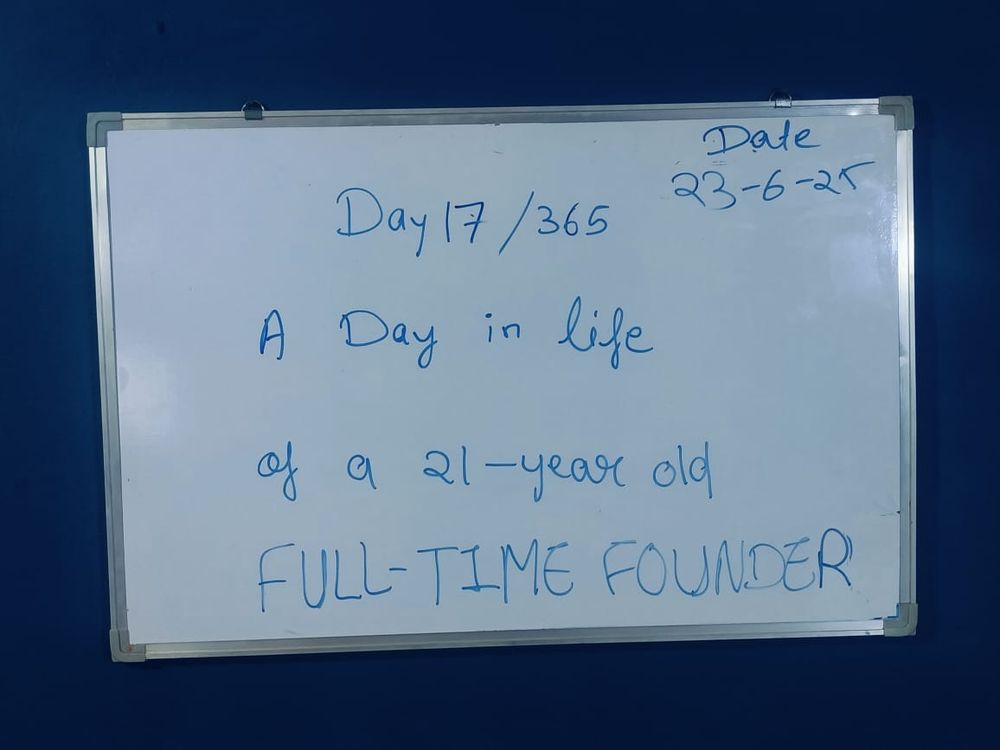 Date
23-6-25
Day 17/365
A Day in life
of a 21-year old
FULL-TIME FOUNDER